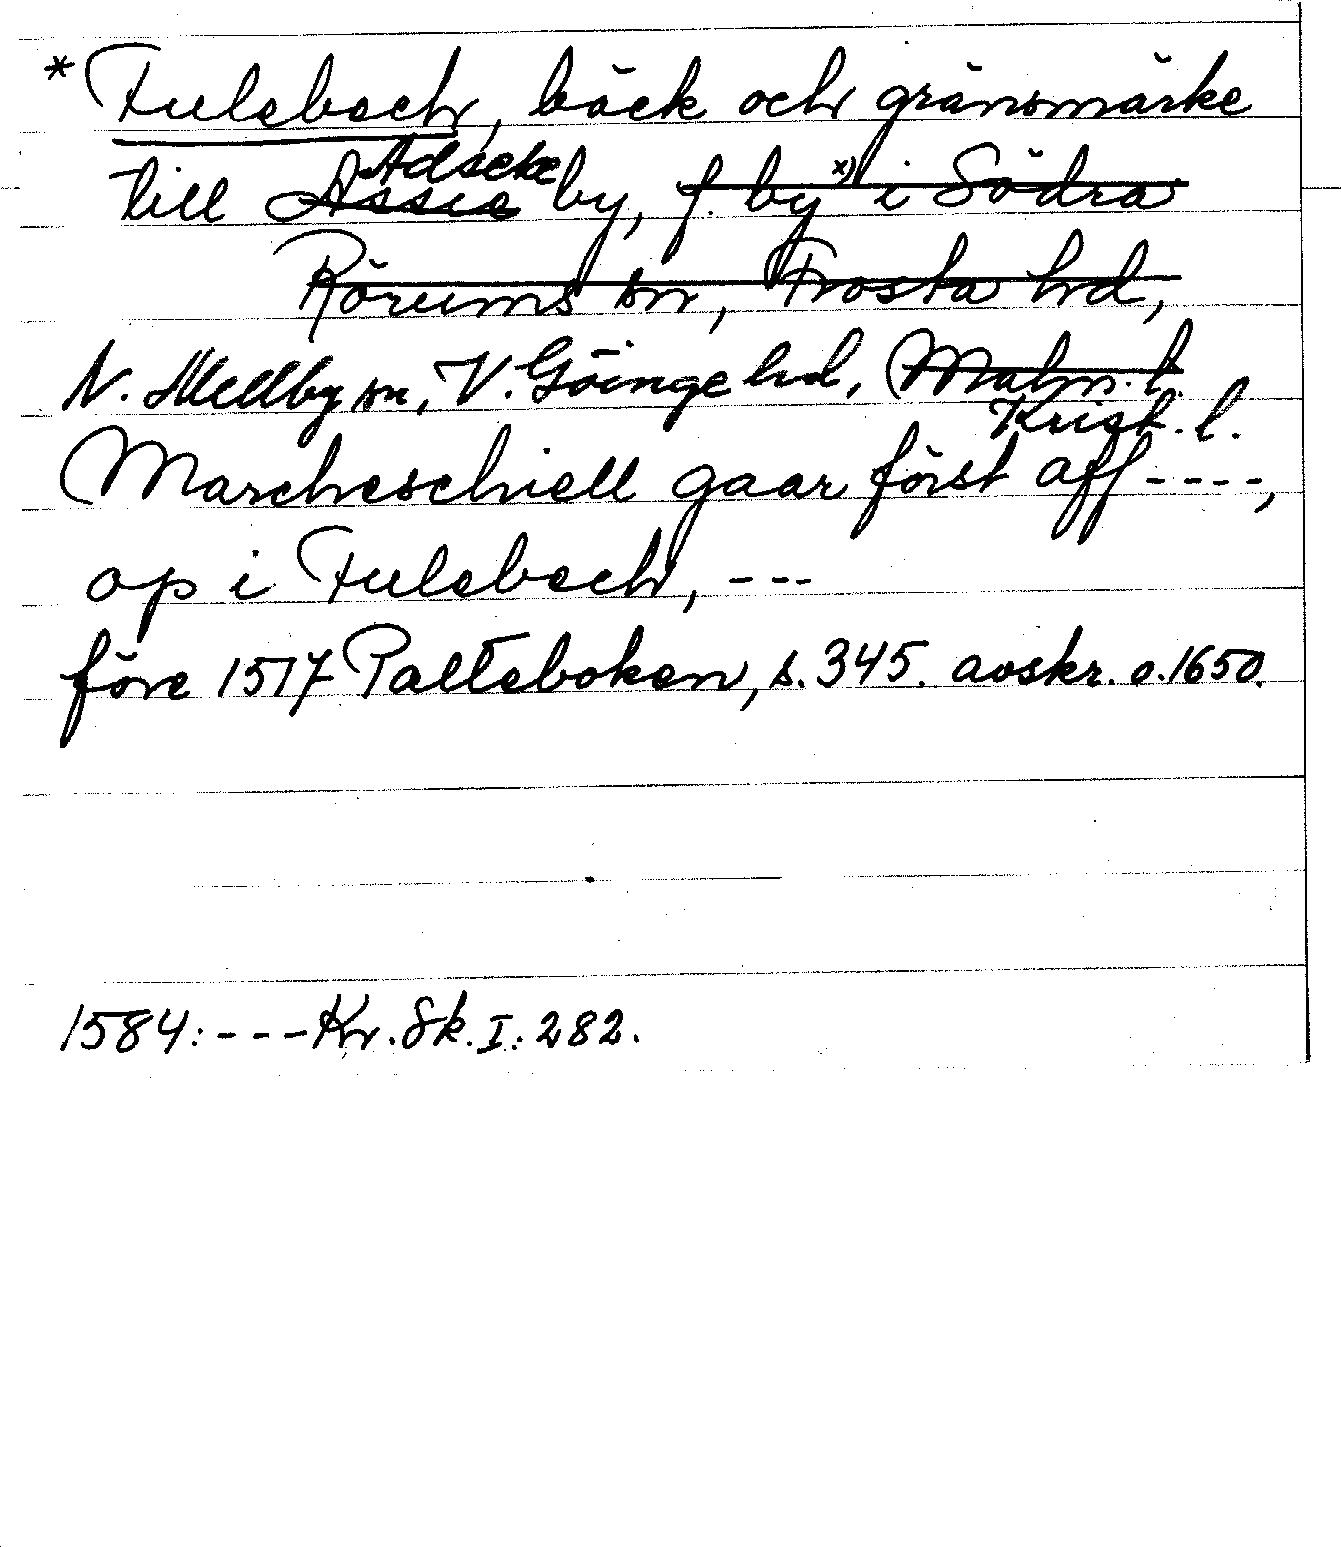 * Fulebech, bäck och gränsmärke
Adseke
till Assie by, f. by x) i Södra
Rörums sn, Frosta hd,
N. Mellby sn, V. Göinge hd, Malm. l.
Krist. l.
Marcheschiell gaar först aff ----,
op i Fulebech, ---
före 1517 Palteboken, s. 345. avskr. o. 1650.
1584: --- Kr. Sk. I: 282.